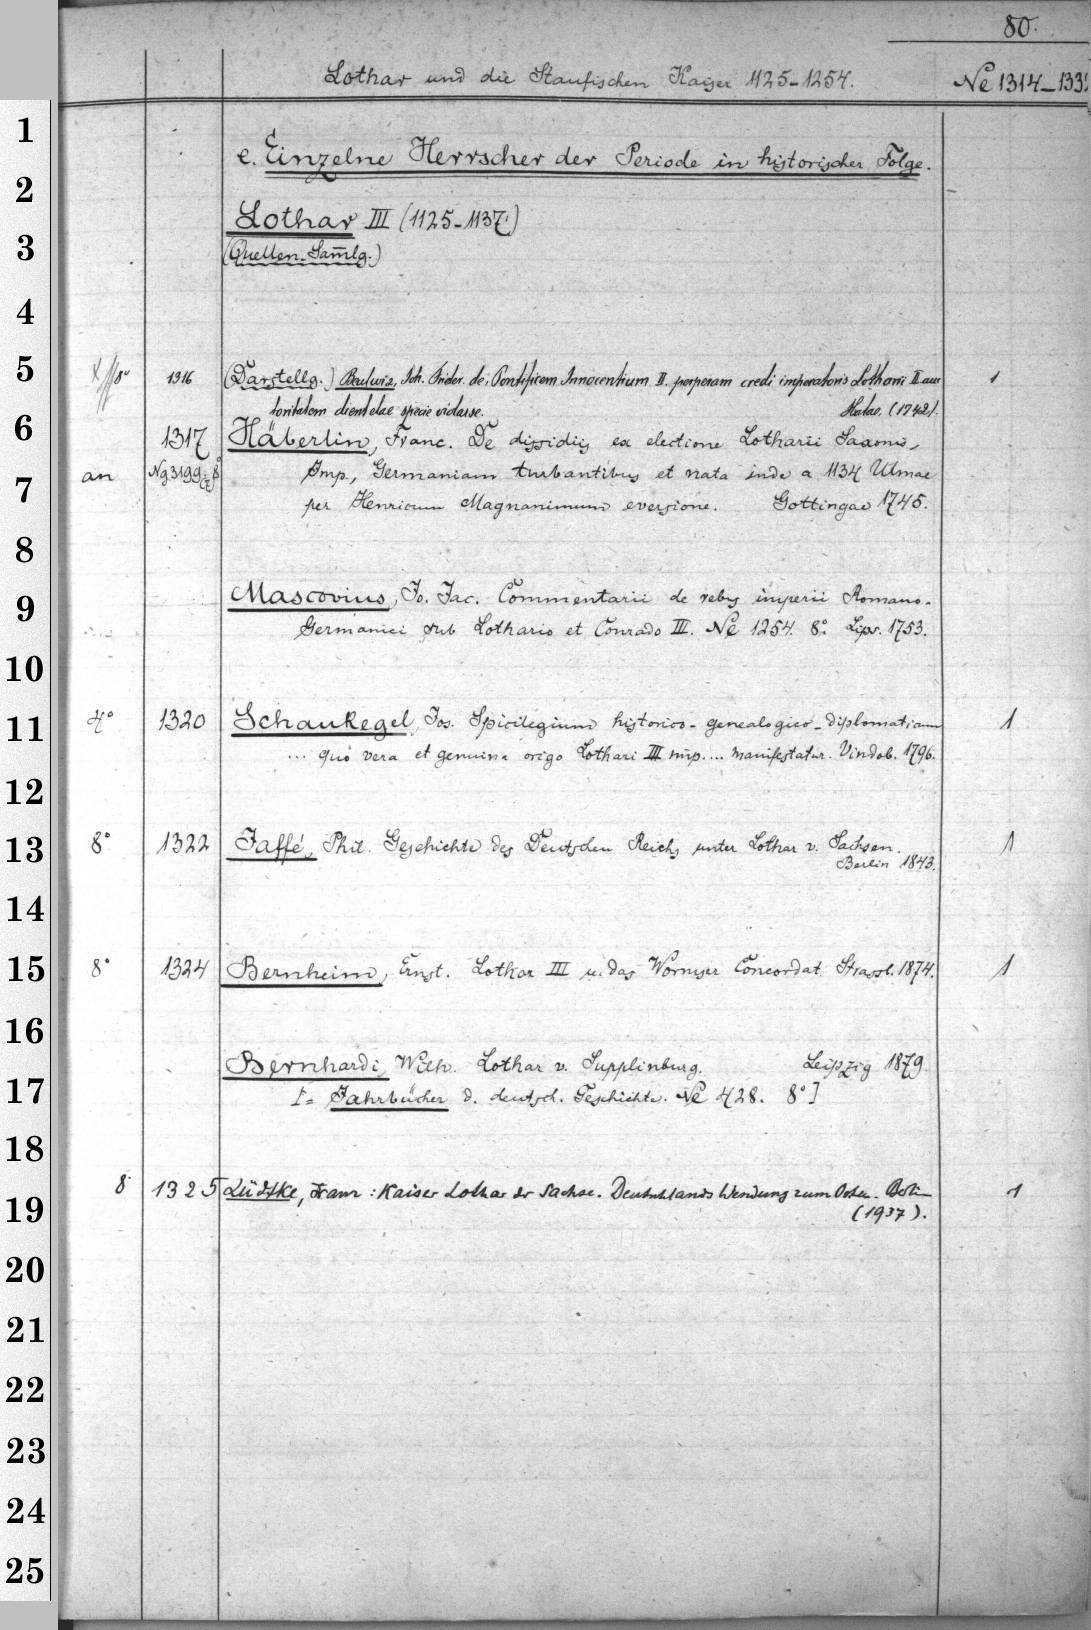 80.
Lothar und die Staufischen Kaiser 1125-1254. Ne 1314-133
e. Einzelne Herrscher der Periode in historischer Folge.
Lothar III (1125-1137.)
(Quellen-Sam̅lg.)
8° 1316 (Darstellg.) Beulwiz, Joh. Frider. de: Pontificem Innocentium II. perperam credi imperatoris Lotharii II. auc 1
toritatem clientelae specie violasse. Halae. (1742).
1317 Häberlin, Franc. De dissidiis ex electione Lotharii Saxonis,
an Ng 3199 8° Imp., Germaniam turbantibus et nata inde a 1134 Ulmae
per Henricum Magnanimum eversione. Gottingae 1745.
Mascovius, Jo. Jac. Commentarii de rebus imperii Romano-
Germanici sub Lothario et Conrado III. Ne 1254. 8°. Lips. 1753.
4° 1320 Schaukegel, Jos. Spicilegium historico-genealogico-diplomaticum 1
... quo vera et genuina origo Lothari III imp.... manifestatur. Vindob. 1796.
8° 1322 Jaffé, Phil. Geschichte des Deutschen Reichs unter Lothar v. Sachsen. 1
Berlin 1843.
8° 1324 Bernheim, Ernst. Lothar III u. das Wormser Concordat. Strassb. 1874. 1
Bernhardi, Wilh. Lothar v. Supplinburg. Leipzig 1879.
[= Jahrbücher d. deutsch. Geschichte. Ne 428. 8°]
8° 1325 Lüdtke, Franz: Kaiser Lothar der Sachse. Deutschlands Wendung zum Osten. Berlin 1
(1937).
1
2
3
4
5
6
7
8
9
10
11
12
13
14
15
16
17
18
19
20
21
22
23
24
25